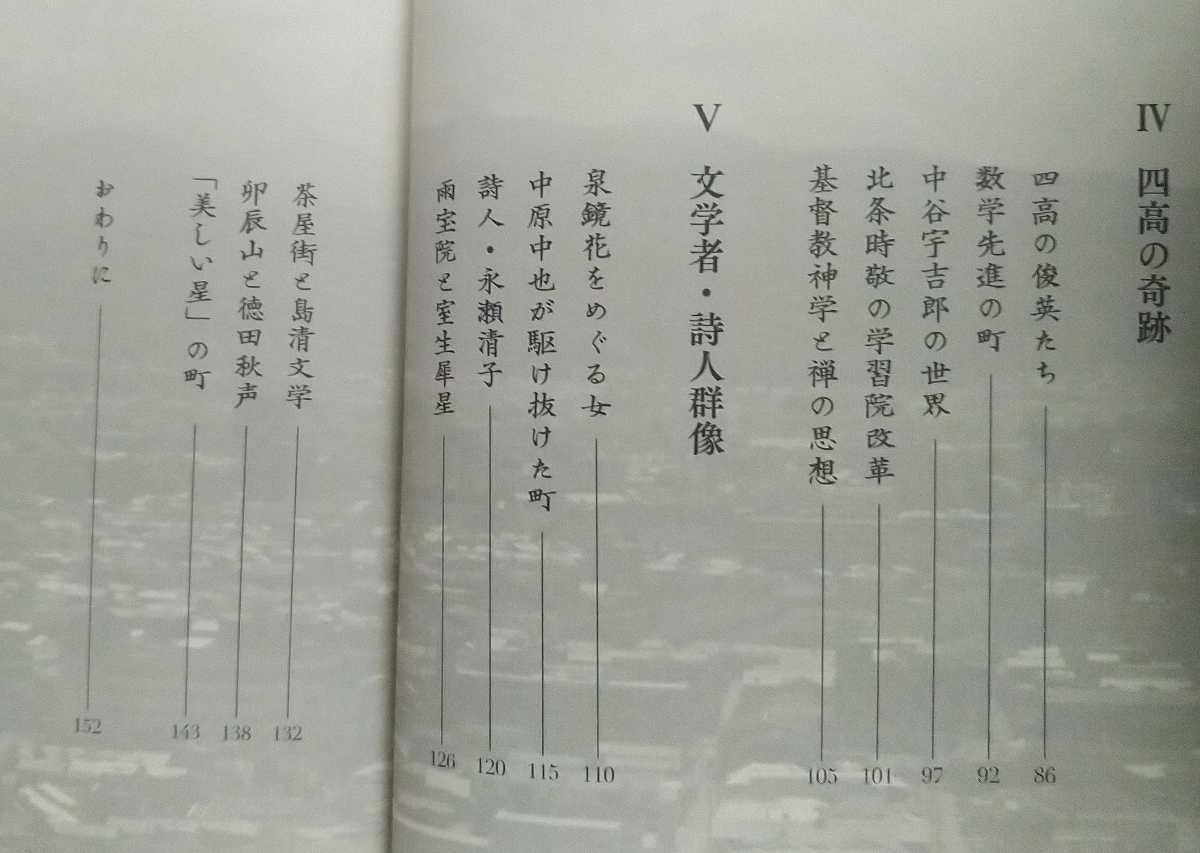 Ⅳ 四高の奇跡
四高の俊英たち 86
数学先進の町 92
中谷宇吉郎の世界 97
北条時敬の学習院改革 101
基督教神学と禅の思想 105
Ⅴ 文学者・詩人群像
泉鏡花をめぐる女 110
中原中也が駆け抜けた町 115
詩人・永瀬清子 120
雨宝院と室生犀星 126
茶屋街と島清文学 132
卯辰山と徳田秋声 138
「美しい星」の町 143
おわりに 152